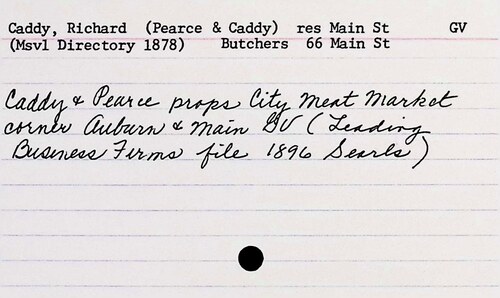 Caddy, Richard (Pearce & Caddy) res Main St GV
(Msvl Directory 1878) Butchers 66 Main St
Caddy & Pearce props City Meat Market
corner Auburn & Main GV (Leading
Business Firms file 1896 Searls)